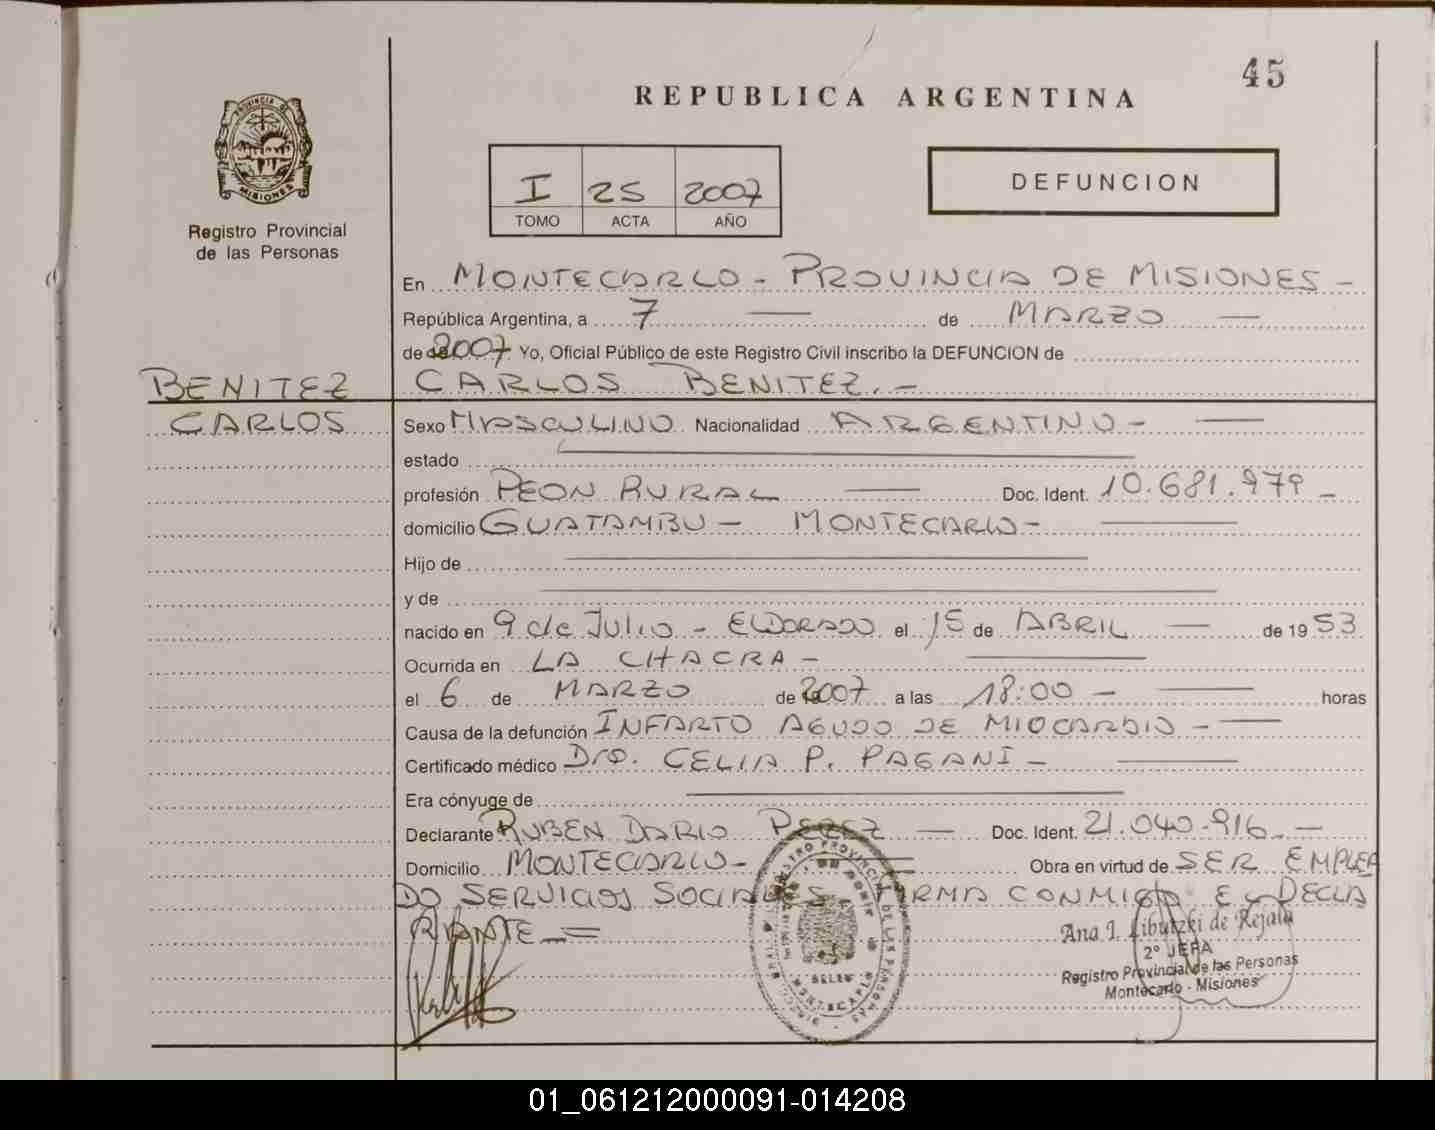 45
REPUBLICA ARGENTINA
PROVINCIA DE
MISIONES
Registro Provincial
de las Personas
I 25 2007
TOMO ACTA AÑO
DEFUNCION
En MONTECARLO - PROVINCIA DE MISIONES -
República Argentina, a 7 — de MARZO —
de 2007 Yo, Oficial Público de este Registro Civil inscribo la DEFUNCION de
BENITEZ CARLOS BENITEZ. -
CARLOS Sexo MASCULINO Nacionalidad ARGENTINO - —
estado —
profesión PEON RURAL — Doc. Ident. 10.681.979 -
domicilio GUATAMBU - MONTECARLO - —
Hijo de —
y de —
nacido en 9 de JULIO - ELDORADO el 15 de ABRIL — de 19 53
Ocurrida en LA CHACRA - —
el 6 de MARZO de 2007 a las 18:00 - — horas
Causa de la defunción INFARTO AGUDO DE MIOCARDIO - —
Certificado médico Dra. CELIA P. PAGANI - —
Era cónyuge de —
Declarante RUBEN DARIO PEREZ — Doc. Ident. 21.040.916 -
Domicilio MONTECARLO - Obra en virtud de SER EMPLEA
DO SERVICIOS SOCIALES FIRMA CONMIGO EL DECLA
RANTE
REGISTRO PROVINCIAL DE LAS PERSONAS
MONTECARLO
Ana I. Libutzki de Rejala
2° JEFA
Registro Provincial de las Personas
Montecarlo - Misiones
01_061212000091-014208